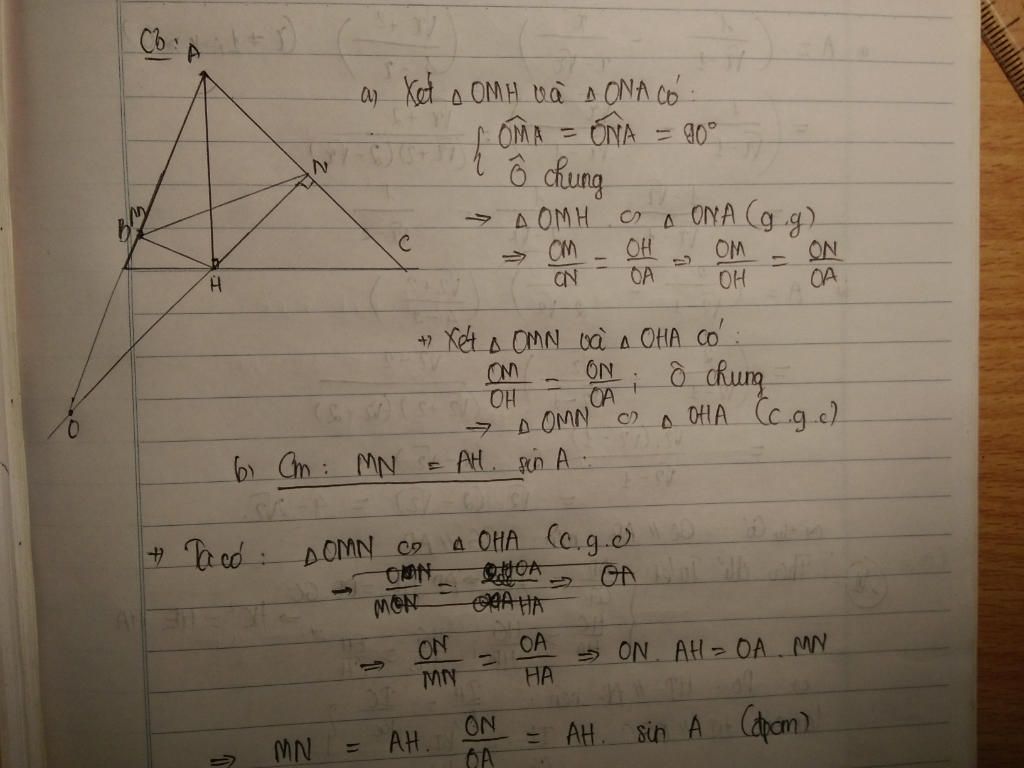 Cb:
A
B
M
N
C
H
O
a) Xét △OMH và △ONA có:
{ OM̂A = ON̂A = 90°
Ô chung
⇒ △OMH ∽ △ONA (g.g)
⇒ OM/ON = OH/OA ⇒ OM/OH = ON/OA
+) Xét △OMN và △OHA có:
OM/OH = ON/OA ; Ô chung
⇒ △OMN ∽ △OHA (c.g.c)
b) Cm: MN = AH. sin A:
+) Ta có: △OMN ∽ △OHA (c.g.c)
⇒ OA
⇒ ON/MN = OA/HA ⇒ ON. AH = OA. MN
⇒ MN = AH. ON/OA = AH. sin A (đpcm)